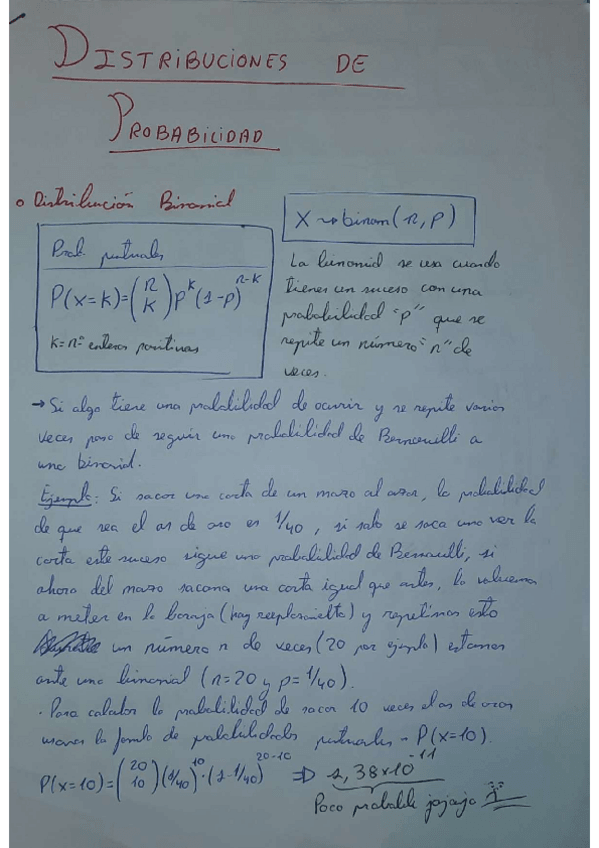 DISTRIBUCIONES DE
PROBABILIDAD
o Distribución Binomial
X ⇝ binom(n, p)
Prob. puntuales
P(x=k)=(n k) p^k (1-p)^n-k
k = nº enteros positivos
La binomial se usa cuando
tienes un suceso con una
probabilidad "p" que se
repite un número "n" de
veces.
→ Si algo tiene una probabilidad de ocurrir y se repite varias
veces pasa de seguir una probabilidad de Bernouilli a
una binomial.
Ejemplo: Si sacas una carta de un mazo al azar, la probabilidad
de que sea el as de oro es 1/40, si solo se saca una vez la
carta este suceso sigue una probabilidad de Bernouilli, si
ahora del mazo sacamos una carta igual que antes, la volvemos
a meter en la baraja (hay reemplazamiento) y repetimos esto
un número n de veces (20 por ejemplo) estamos
ante una binomial (n=20 y p=1/40).
· Para calcular la probabilidad de sacar 10 veces el as de oros
usamos la formula de probabilidades puntuales - P(x=10).
P(x=10)=(20 10)(1/40)^10·(1-1/40)^20-10 ⇒ 1,38x10^-11
Poco probable jajaja